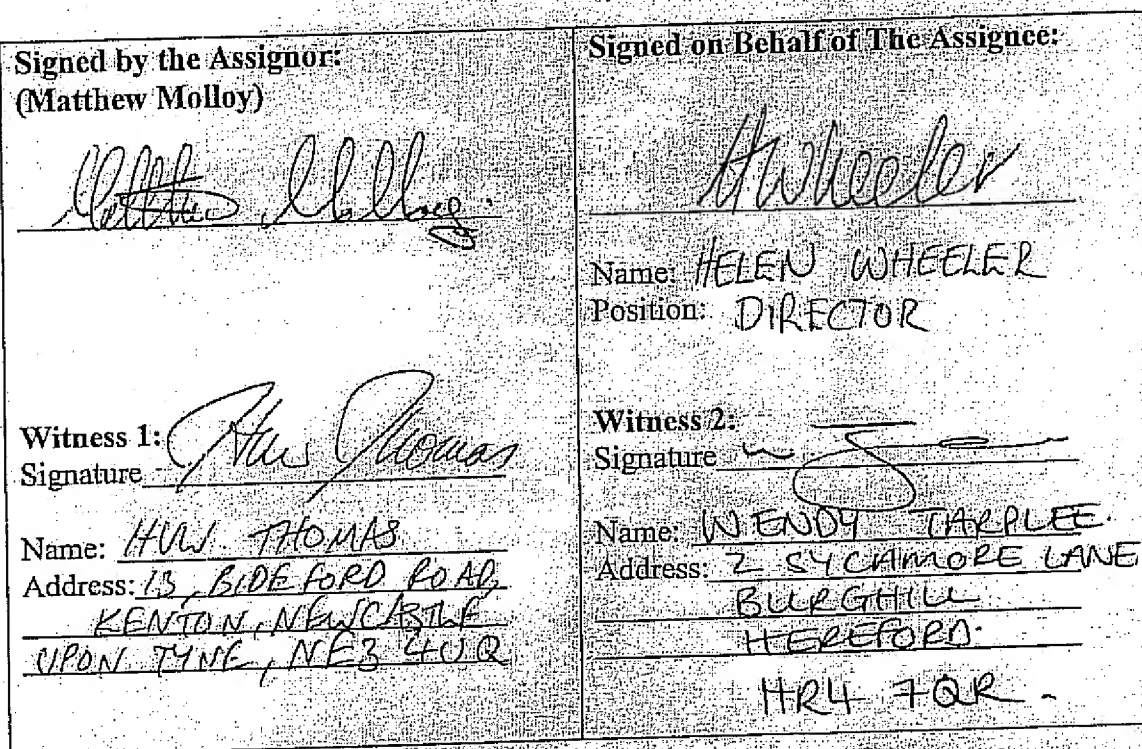 Signed by the Assignor:
(Matthew Molloy)
Matthew Molloy
Witness 1:
Signature Huw Thomas
Name: HUW THOMAS
Address: 13, BIDEFORD ROAD,
KENTON, NEWCASTLE
UPON TYNE, NE3 4UQ
Signed on Behalf of The Assignee:
HWheeler
Name: HELEN WHEELER
Position: DIRECTOR
Witness 2:
Signature
Name: WENDY TARPLEE.
Address: 2 SYCAMORE LANE
BURGHILL
HEREFORD.
HR4 7QR -